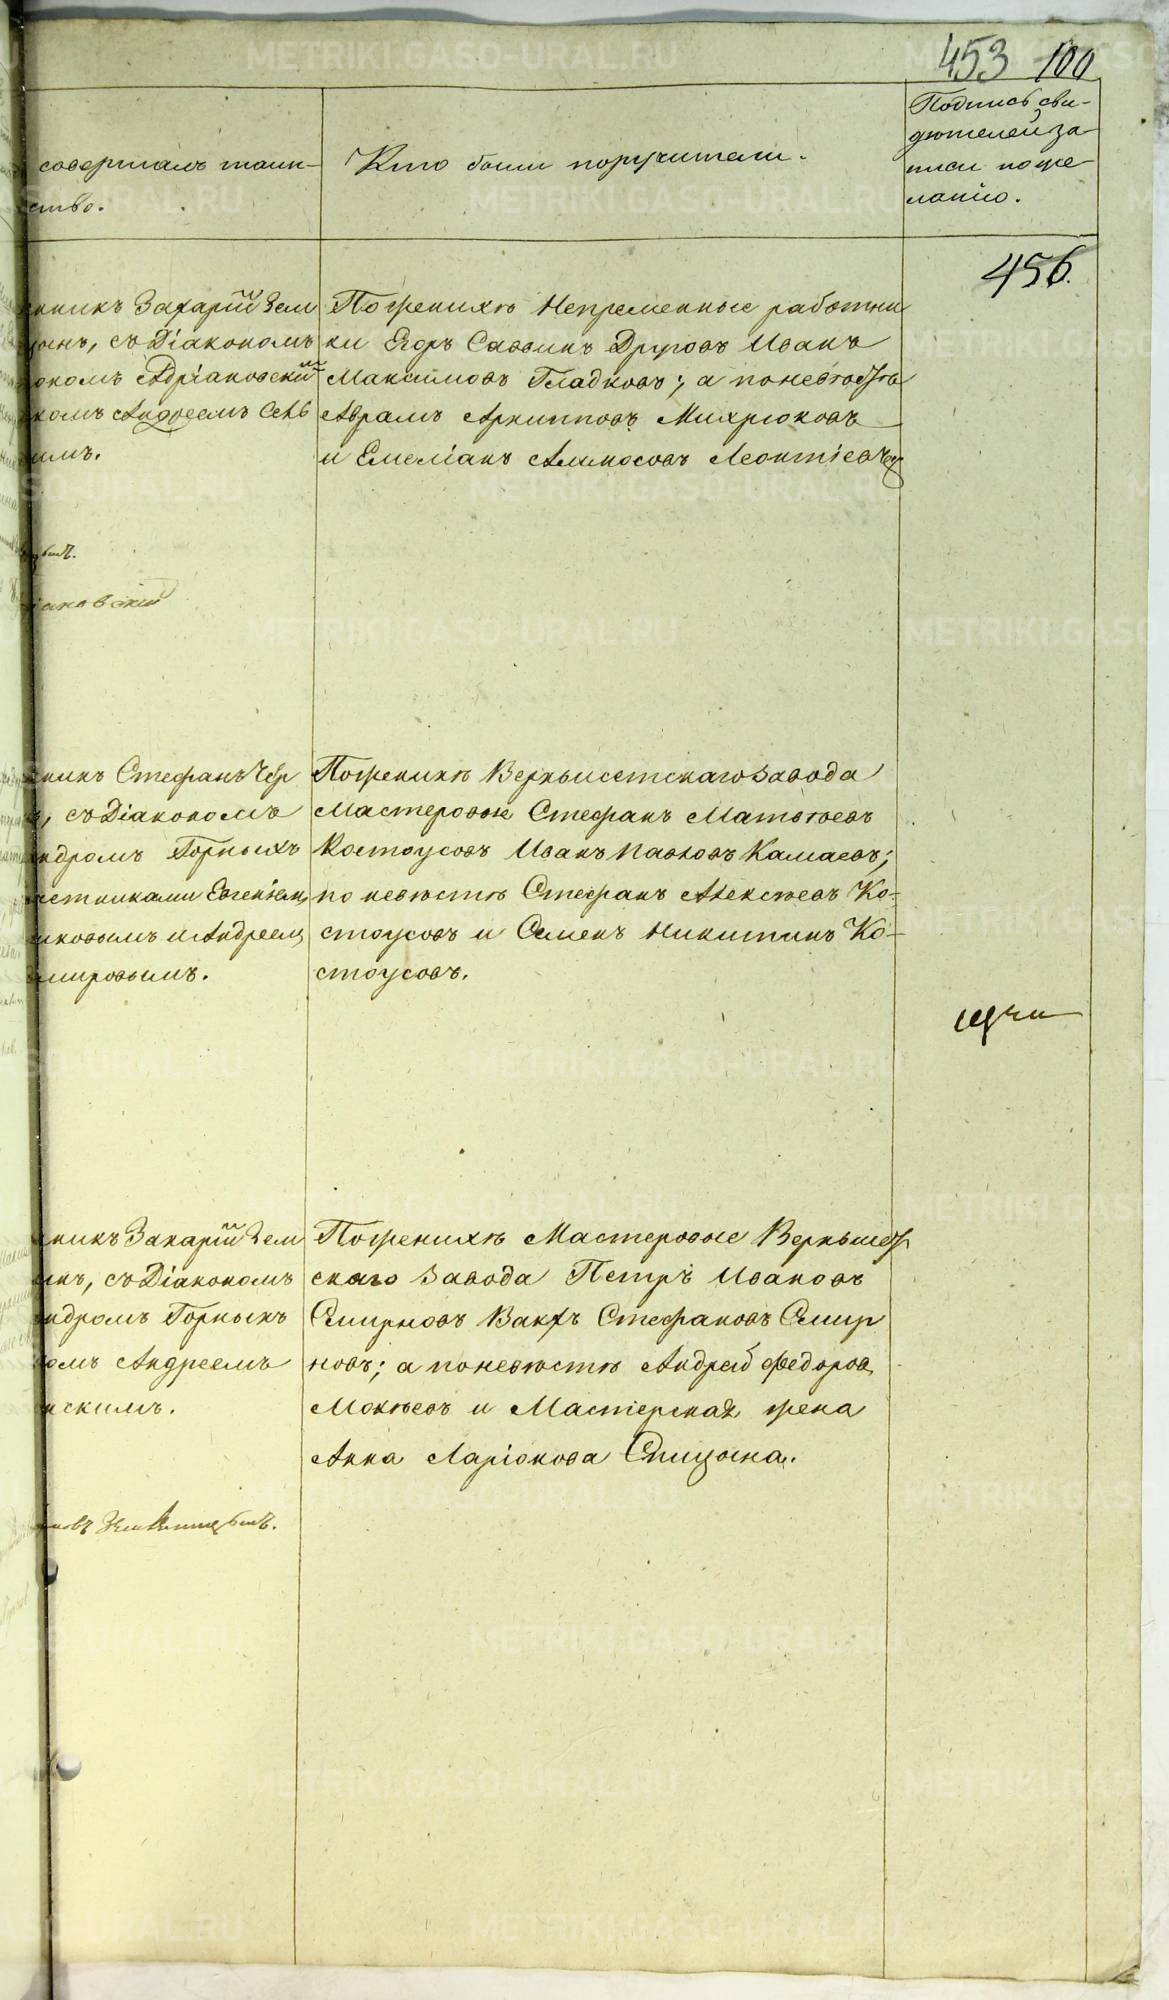 453 100
совершалъ таин-
ство.
Кто были поручители.
Подпись сви-
дѣтелей за
писи по же
ланію.
456.
нникъ Захарій Зем
ынъ, съ Діакономъ
кономъ Адріановскій
комъ Андреемъ Сель
имъ.
По женихѣ Непременные работни
ки Егоръ Саввинъ Друговъ Иванъ
Максимовъ Гладковъ; а по невѣстѣ
Аврамъ Архиповъ Михрюковъ
и Емеліанъ Амосовъ Леонтіевъ
іановскій
нникъ Стефанъ Чер
, съ Діакономъ
ндромъ Горныхъ
четниками Евгеніем
иковымъ и Андреем
мировымъ.
По женихѣ Верхъисетскаго завода
Мастеровые Стефанъ Матвѣевъ
Костоусовъ Иванъ Павловъ Камаевъ;
по невѣстѣ Стефанъ Алексѣевъ Ко-
стоусовъ и Семенъ Никитинъ Ко-
стоусовъ.
нникъ Захарій Зем
нъ, съ Діакономъ
ндромъ Горныхъ
омъ Андреемъ
нскимъ.
По женихѣ Мастеровые Верхъисет
скаго завода Петръ Ивановъ
Смирновъ Вакхъ Стефановъ Смир
новъ; а по невѣстѣ Андрей Федоров
Мокѣевъ и Мастерская жена
Анна Ларіонова Спицына.
METRIKI.GASO-URAL.RU